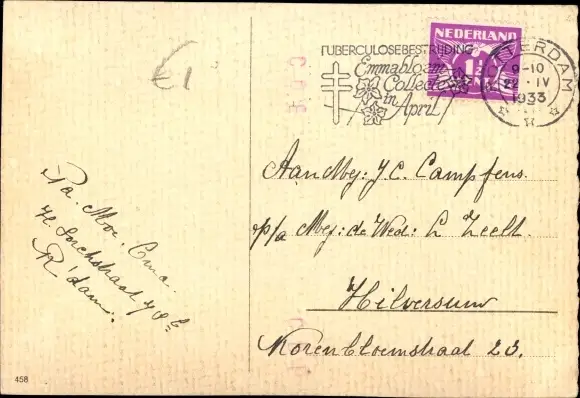 €1
TUBERCULOSEBESTRIJDING
Emmabloem
Collecte
in April
NEDERLAND
1½
CENT
TERDAM
9-10
22 IV
1933
Pa. Moe. Cma.
R'dam.
Aan Mej: J.C. Campfens.
p/a Mej: de Wed: L Zeelt.
Hilversum
Korenbloemstraat 23.
458